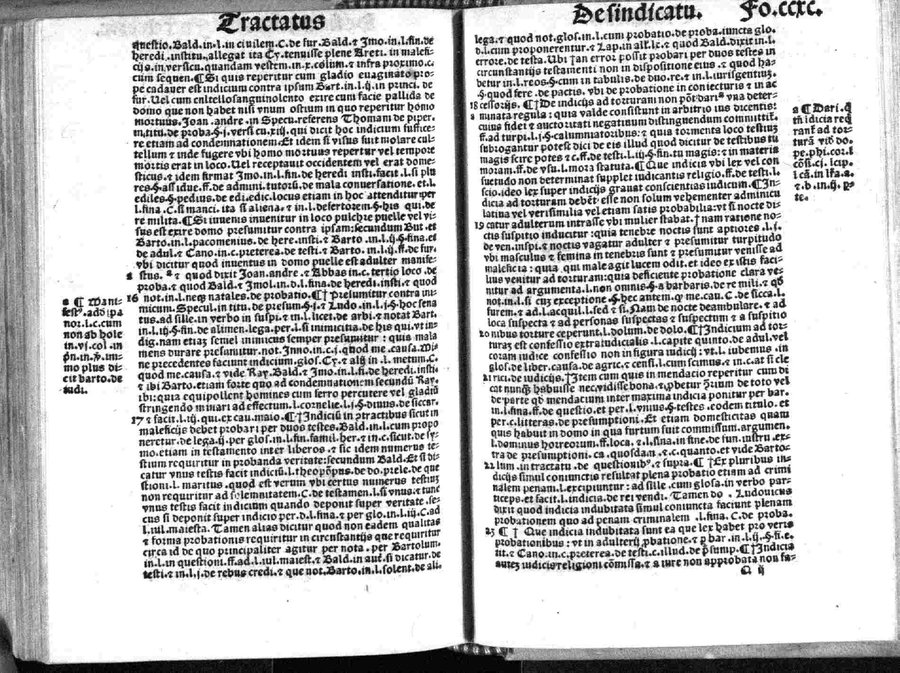 Tractatus
questio. Bald. in. l. in ciuilem. C. de fur. Bald. ⁊ Imo. in. l. fin. de
heredi. institu. allegat ita Cy. tenuisse plene Areti. in malefi-
cijs. in versicu. quandam vestem. in. x. colum. ⁊ infra proximo. c.
cum sequen. ¶ Si quis reperitur cum gladio euaginato pro-
pe cadauer est indicum contra ipsum Bart. in. l. ij. in princi. de
fur. Uel cum cultello sanguinolento exire cum facie pallida de
domo que non habet nisi vnum ostium in quo reperitur homo
mortuus. Joan. andre. in Specu. referens Thomam de piper.
in. titu. de proba. §. i. versi. cu. xiij. qui dicit hoc indicium suffice-
re etiam ad condemnationem. Et idem si visus fuit molare cul-
tellum ⁊ inde fugere vbi homo mortuus repertur vel tempore
mortis erat in loco. Uel receptauit occidentem vel erat dome-
sticus. ⁊ idem firmat Imo. in. l. fin. de heredi insti. facit. l. si plu
res. §. ass idue. ff. de admini. tutorū. de mala conuersatione. et. l.
ediles. §. pedius. de edi. edic. locus etiam in hoc attenditur per
l. fina. C. si manci. ita si aliena. ⁊ in. l. desertorem. §. his qui. de
re milita. ¶ Si iuuenis inuenitur in loco pulchre puelle vel vi-
sus est exire domo presumitur contra ipsam: secundum But. et
Barto. in. l. pacomenius. de here. insti. ⁊ Barto. in. l. ij. §. fina. et
de adul. ⁊ Cano. in. c. preterea. de testi. ⁊ Barto. in. l. ij. ff. de fur.
vbi dicitur quod inuentus in domo puelle est adulter manife-
a stus. ª ⁊ quod dixit Joan. andre. ⁊ Abbas in. c. tertio loco. de
proba. ⁊ quod Bald. ⁊ Imol. in. d. l. fina. de heredi. insti. ⁊ quod
16 not. in. l. neqꝫ natales. de probatio. ¶ † Presumitur contra ini-
micum. Specul. in titu. de presum. §. i. ⁊ Ludo. in. l. i. §. hoc sena
tus. ad sille. in verbo in suspi. ⁊ in. l. licet. de arbi. ⁊ notat Bart.
in. l. iij. §. fin. de alimen. lega. per. l. si inimicitia de his qui. vt in-
dig. nam etiaʒ semel inimicus semper presumitur: quis mala
mens durare presumitur. not. Inno. in. c. i. quod me. causa. Mi-
ne precedentes faciunt indicium. glos. Cy. ⁊ alij in. l. metum. C.
quod me. causa. ⁊ vide Ray. Bald. ⁊ Imo. in. l. fin. de heredi. insti
⁊ ibi Barto. etiam forte quo ad condemnationem secundū Ray.
ibi: quia equipollent homines cum ferro percutere vel gladiū
stringendo minari ad effectum. l. cornelie. l. i. §. diuus. de siccar.
17 ⁊ facit. l. iij. qui. ex cau. maio. ¶ † Indiciū in practibus sicut in
maleficijs debet probari per duos testes. Bald. in. l. cum propo
neretur. de lega. ij. per glos. in. l. fin. famil. her. ⁊ in. c. sicut. de sy-
mo. etiam in testamento inter liberos. ⁊ sic idem numerus te-
stium requiritur in probanda veritate: secundum Bald. Et si di-
catur vnus testis facit indiciū. l. theopōpus. de do. prele. de que
stioni. l. maritus. quod est verum vbi certus numerus testiuʒ
non requiritur ad solemnitatem. C. de testamen. l. si vnus. ⁊ tunc
vnus testis facit indicium quando deponit super veritate. se-
cus si deponit super indicio per. d. l. fina. ⁊ per glo. in. l. iij. C. ad
l. iul. maiesta. Tamen alias dicitur quod non eadem qualitas
⁊ forma probationis requiritur in circunstātijs que requiritur
circa id de quo principaliter agitur per nota. per Bartolum.
in. l. in questioni. ff. ad. l. iul. maiest. ⁊ Bald. in auť. si dicatur. de
testi. ⁊ in. l. j. de rebus credi. ⁊ que not. Barto. in. l. solent. de ali.
a ¶ Mani
norī. c. cum
non ab hole
mo plus di-
cit barto. de
audi.
De sindicatu. Fo. ccxc.
lega. ⁊ quod not. glos. in. l. cum probatio. de proba. iuncta glo.
d. l. cum proponerentur. ⁊ Lap. in all. lc. ⁊ quod Bald. dixit in. l.
errore. de testa. Ubi † an error possit probari per duos testes in
circunstātijs testamenti non in dispositione eius ⁊ quod ha-
betur in. l. reos. §. cum in tabulis. de duo. re. ⁊ in. l. iurisgentiuʒ.
§. quod fere. de pactis. vbi de probatione in coniecturis ⁊ in ac
18 cessorijs. ¶ † De indicijs ad torturam non pōt dariª vna deter-
a minata regula: quia valde consistunt in arbitrio ius dicentis:
cuius fidei ⁊ auctoritati negatinum distinguendum committit.
ff. ad turpi. l. i. §. calumniatoribus: ⁊ quia tormenta loco testiuʒ
subrogantur potest dici de eis illud quod dicitur de testibus tu
magis scire potes ⁊ c. ff. de testi. l. iij. §. fin. tu magis: ⁊ in materia
moram. ff. de vsu. l. mora statuta. ¶ Que indicia vbi lex vel con
suetudo non determinat supplet iudicantis religio. ff. de testi. l.
scio. ideo lex super indicijs grauat conscientias iudicum. ¶ In-
dicia ad torturam debēt esse non solum vehementer adminicu
latiua vel verisimilia vel etiam satis probabilia: vt si nocte di-
19 catur adulterum intrasse vbi mulier stabat. † nam ratione no-
ctis suspitio inducitur: quia tenebre noctis sunt aptiores. l. i.
de ven. inspi. ⁊ noctis vagatur adulter ⁊ presumitur turpitudo
vbi masculus ⁊ femina in tenebris sunt ⁊ presumitur venisse ad
maleficia: quia qui male agit lucem odit. et ideo ex istis faci-
lius venitur ad torturam: quia deficiente probatione clara ve-
nitur ad argumenta. l. non omnis. §. a barbaris. de re mili. ⁊ qd
not. in. l. si cuʒ exceptione. §. hec antem. qd me. cau. C. de sicca. l.
furem. ⁊ ad. l. acquil. l. sed ⁊ si. Nam de nocte deambulare. ⁊ ad
loca suspecta ⁊ ad personas suspectas ⁊ suspectum ⁊ a suspitio
20 nibus torture ceperunt. l. dolum. de dolo. ¶ † Indicium ad tor-
turaʒ est confessio extraiudicialis. l. capite quinto. de adul. vel
coram iudice confessio non in figura iudicij: vt. l. iubemus in
glos. de liber. causa. de agric. ⁊ censi. l. cum scimus. ⁊ in. c. at si cle
21 rici. de iudicijs. † Item cum quis in mendacio reperitur cum di
cat nunqʒ habuisse nec vidisse bona. ⁊ ꝓbetur ꝯrium de toto vel
de parte qꝛ mendacium inter maxima indicia ponitur per bar.
in. l. fina. ff. de questio. et per. l. vnius. §. testes. eodem titulo. et
per. c. litteras. de presumptioni. Et etiam domesticitas quam
quis habuit in domo in qua furtum fuit commissum. argumen.
l. dominus horreorum. ff. loca. ⁊ l. fina. in fine. de fun. instru. ex-
tra de presumptioni. ca. quosdam. ⁊ c. quanto. et vide Barto-
22 lum. in tractatu. de questionibꝰ. ⁊ supra. ¶ † Ex pluribus in-
dicijs simul coniunctis resultat plena probatio etiam ad crimi
nalem penam. l. excipiuntur: ad sille. cum glosa. in verbo par-
ticeps. et facit. l. indicia. de rei vendi. Tamen do. Ludouicus
dixit quod indicia indubitata simul coniuncta faciunt plenam
probationem quo ad penam criminalem. l. fina. C. de proba.
23 ¶ † Que indicia indubitata sunt ea que lex habet pro veris
probationibus: vt in adulterij ꝓbatione. ⁊ p bar. in. l. ij. §. fi. e.
tit. ⁊ Cano. in. c. preterea. de testi. c. illud. de p̄sump. ¶ Indicia
auteʒ iudicis religioni cōmissa. ⁊ a iure non approbata non fa-
Q ij
a ¶ Dari. q
tn̄ indicia req
ranť ad tor-
turā vid̄ do.
pe. phi. cor. i
cōsi. cj. in. p